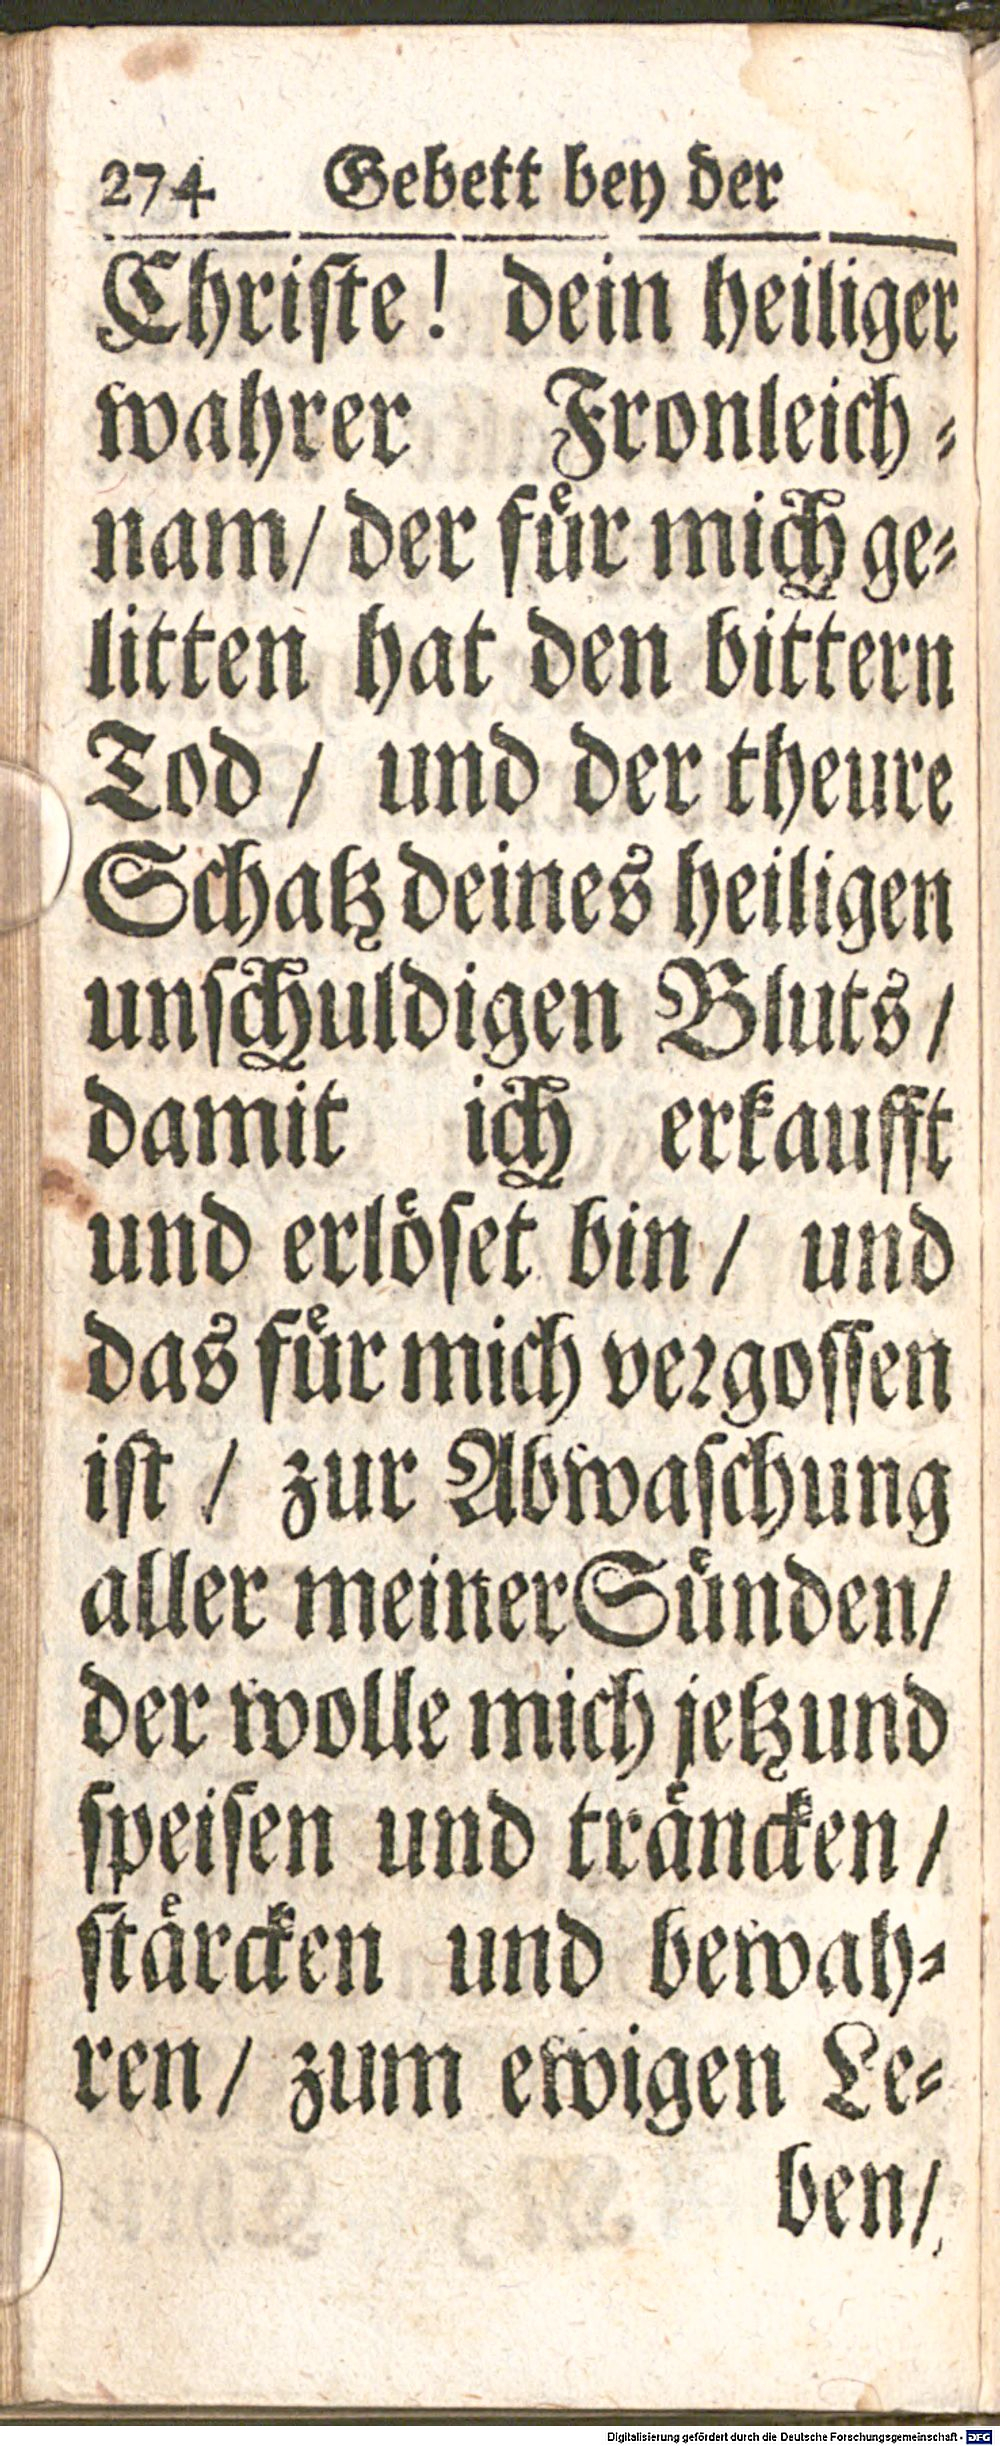 274 Gebett bey der
Christe! dein heiliger
wahrer Fronleich⸗
nam/ der fuͤr mich ge⸗
litten hat den bittern
Tod / und der theure
Schatz deines heiligen
unschuldigen Bluts /
damit ich erkaufft
und erloͤset bin / und
das fuͤr mich vergossen
ist / zur Abwaschung
aller meiner Suͤnden/
der wolle mich jetzund
speisen und traͤncken /
staͤrcken und bewah⸗
ren / zum ewigen Le⸗
ben/
Digitalisierung gefördert durch die Deutsche Forschungsgemeinschaft - DFG